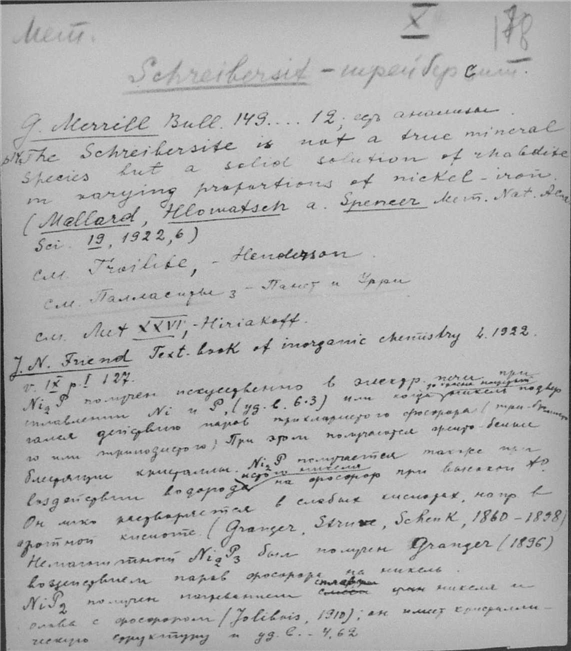 Мет. X 178
Schreibersit - шрейберсит.
G. Merrill Bull. 149 ... 12; есть анализы.
The Schreibersite is not a true mineral
species but a solid solution of rhabdite
in varying proportions of nickel-iron.
(Mallard, Hlowatsch a. Spencer Mem. Nat. Aca
Sci. 19, 1922, 6)
см. Troilite, - Henderson
см. Палласиты 3 - Панет и Урри
см. Мет XXVI, - Hiriakoff.
J. N. Friend Text-book of inorganic chemistry L. 1922.
v. IX p. I 127.
Ni2P получен искуственно в электр. печи при
сплавлении Ni и P, (уд. в. 6.3) или когда никель подвер
гался действию паров треххлористого фосфора (три
го или трииодистого) При этом получаются
блестящие кристаллы. Ni2P получается также при
воздействии водорода на фосфор при высокой t°.
Он легко растворяется в слабых кислотах, напр в
азотной кислоте. (Granger, Struve, Schenk, 1860-1898)
Немагнитный Ni2P3 был получен Granger (1896)
воздействием паров фосфора на никель.
NiP2 получен нагреванием сплава никеля и
олова с фосфором (Jolibois, 1910); он имеет кристалли-
ческую структуру и уд. в. .. 4,62